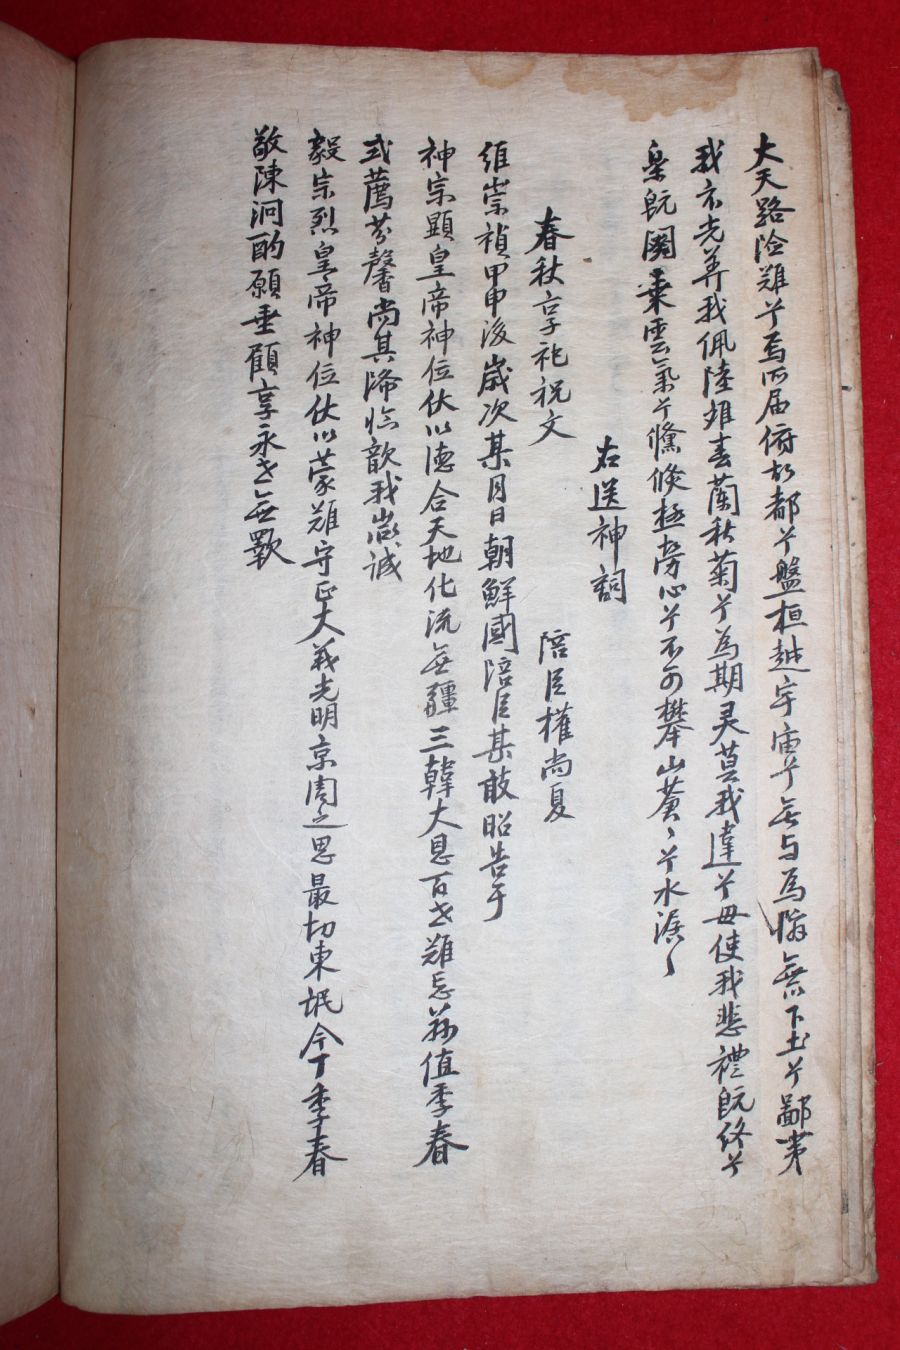 大天路险難兮焉所届俯故都兮盤桓越宇宙兮无与焉無下土兮鄙
我不老兮我佩陸雄春蘭秋菊兮為期灵莫我違兮毋使我悲禮既終兮
樂既闋乘雲氣兮儵倐極勞心兮不可攀山蒼〻兮水
右送神詞
春秋享祀祝文 陪臣權尚夏
維崇禎甲申後歲次某月日朝鮮國陪臣某敢昭告于
神宗顯皇帝神位伏以德合天地化流无疆三韓大恩百世難忘玆值季春
式薦芬馨尚其降临歆我微誠
毅宗烈皇帝神位伏以蒙難守正大義光明京周之思最切東氓今丁季春
敬陳泂酌願垂顧享永世无斁